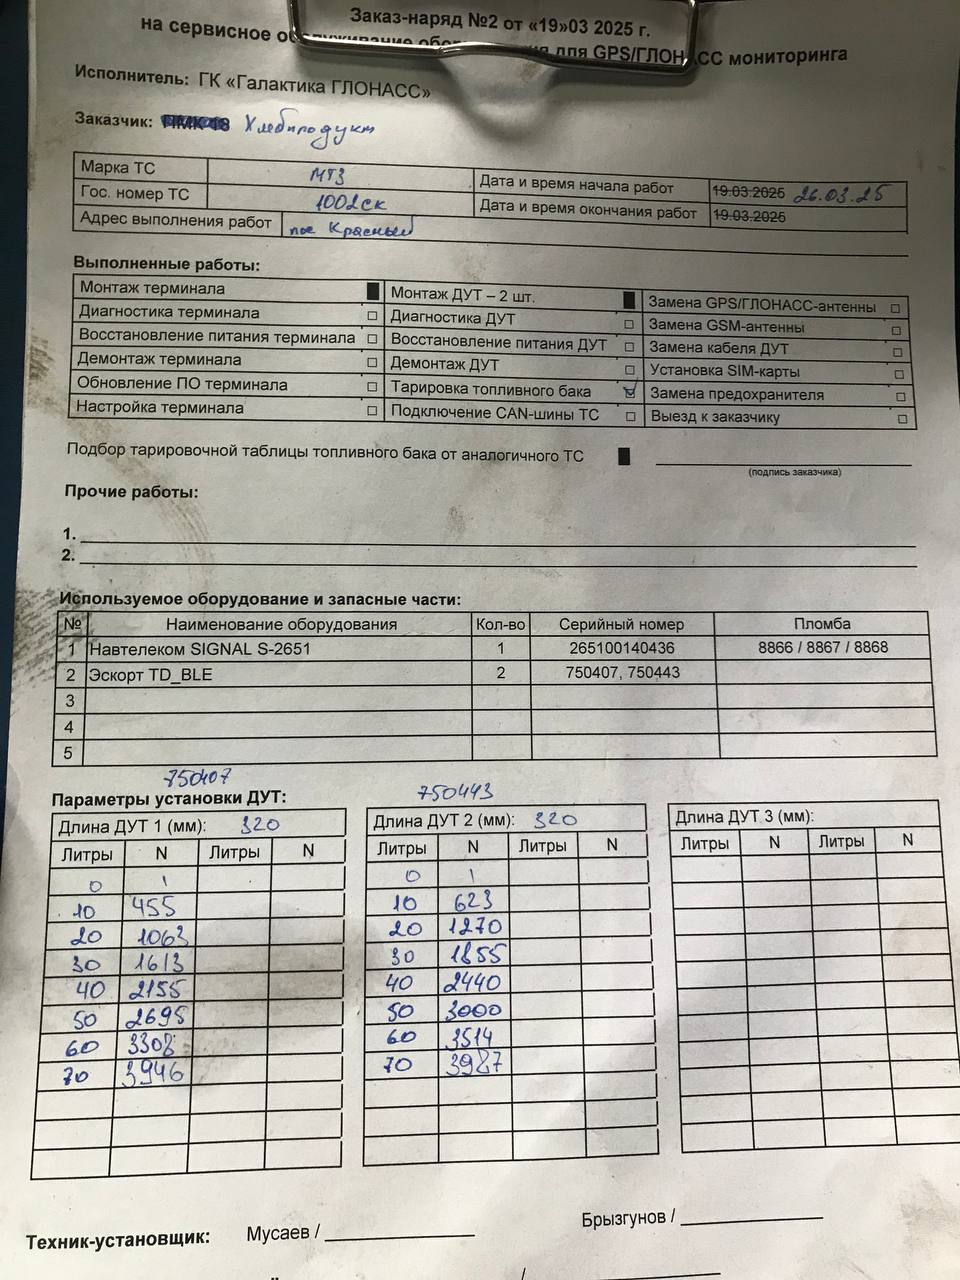 Заказ-наряд №2 от «19»03 2025 г.
на сервисное обслуживание для GPS/ГЛОНАСС мониторинга
Исполнитель: ГК «Галактика ГЛОНАСС»
Заказчик: ПМК 18 Хлебпродукт
Марка ТС МТЗ Дата и время начала работ 19.03.2025 26.03.25
Гос. номер ТС 1002ск Дата и время окончания работ 19.03.2025
Адрес выполнения работ пос Красный
Выполненные работы:
Монтаж терминала ■ Монтаж ДУТ – 2 шт. ■ Замена GPS/ГЛОНАСС-антенны □
Диагностика терминала □ Диагностика ДУТ □ Замена GSM-антенны □
Восстановление питания терминала □ Восстановление питания ДУТ □ Замена кабеля ДУТ □
Демонтаж терминала □ Демонтаж ДУТ □ Установка SIM-карты □
Обновление ПО терминала □ Тарировка топливного бака ☑ Замена предохранителя □
Настройка терминала □ Подключение CAN-шины ТС □ Выезд к заказчику □
Подбор тарировочной таблицы топливного бака от аналогичного ТС ■
(подпись заказчика)
Прочие работы:
1.
2.
Используемое оборудование и запасные части:
№ Наименование оборудования Кол-во Серийный номер Пломба
1 Навтелеком SIGNAL S-2651 1 265100140436 8866 / 8867 / 8868
2 Эскорт TD_BLE 2 750407, 750443
3
4
5
750407 750443
Параметры установки ДУТ:
Длина ДУТ 1 (мм): 320 Длина ДУТ 2 (мм): 320 Длина ДУТ 3 (мм):
Литры N Литры N Литры N Литры N Литры N Литры N
0 1 0 1
10 455 10 623
20 1063 20 1270
30 1613 30 1855
40 2155 40 2440
50 2695 50 3000
60 3308 60 3514
70 3946 70 3987
Техник-установщик: Мусаев / Брызгунов /